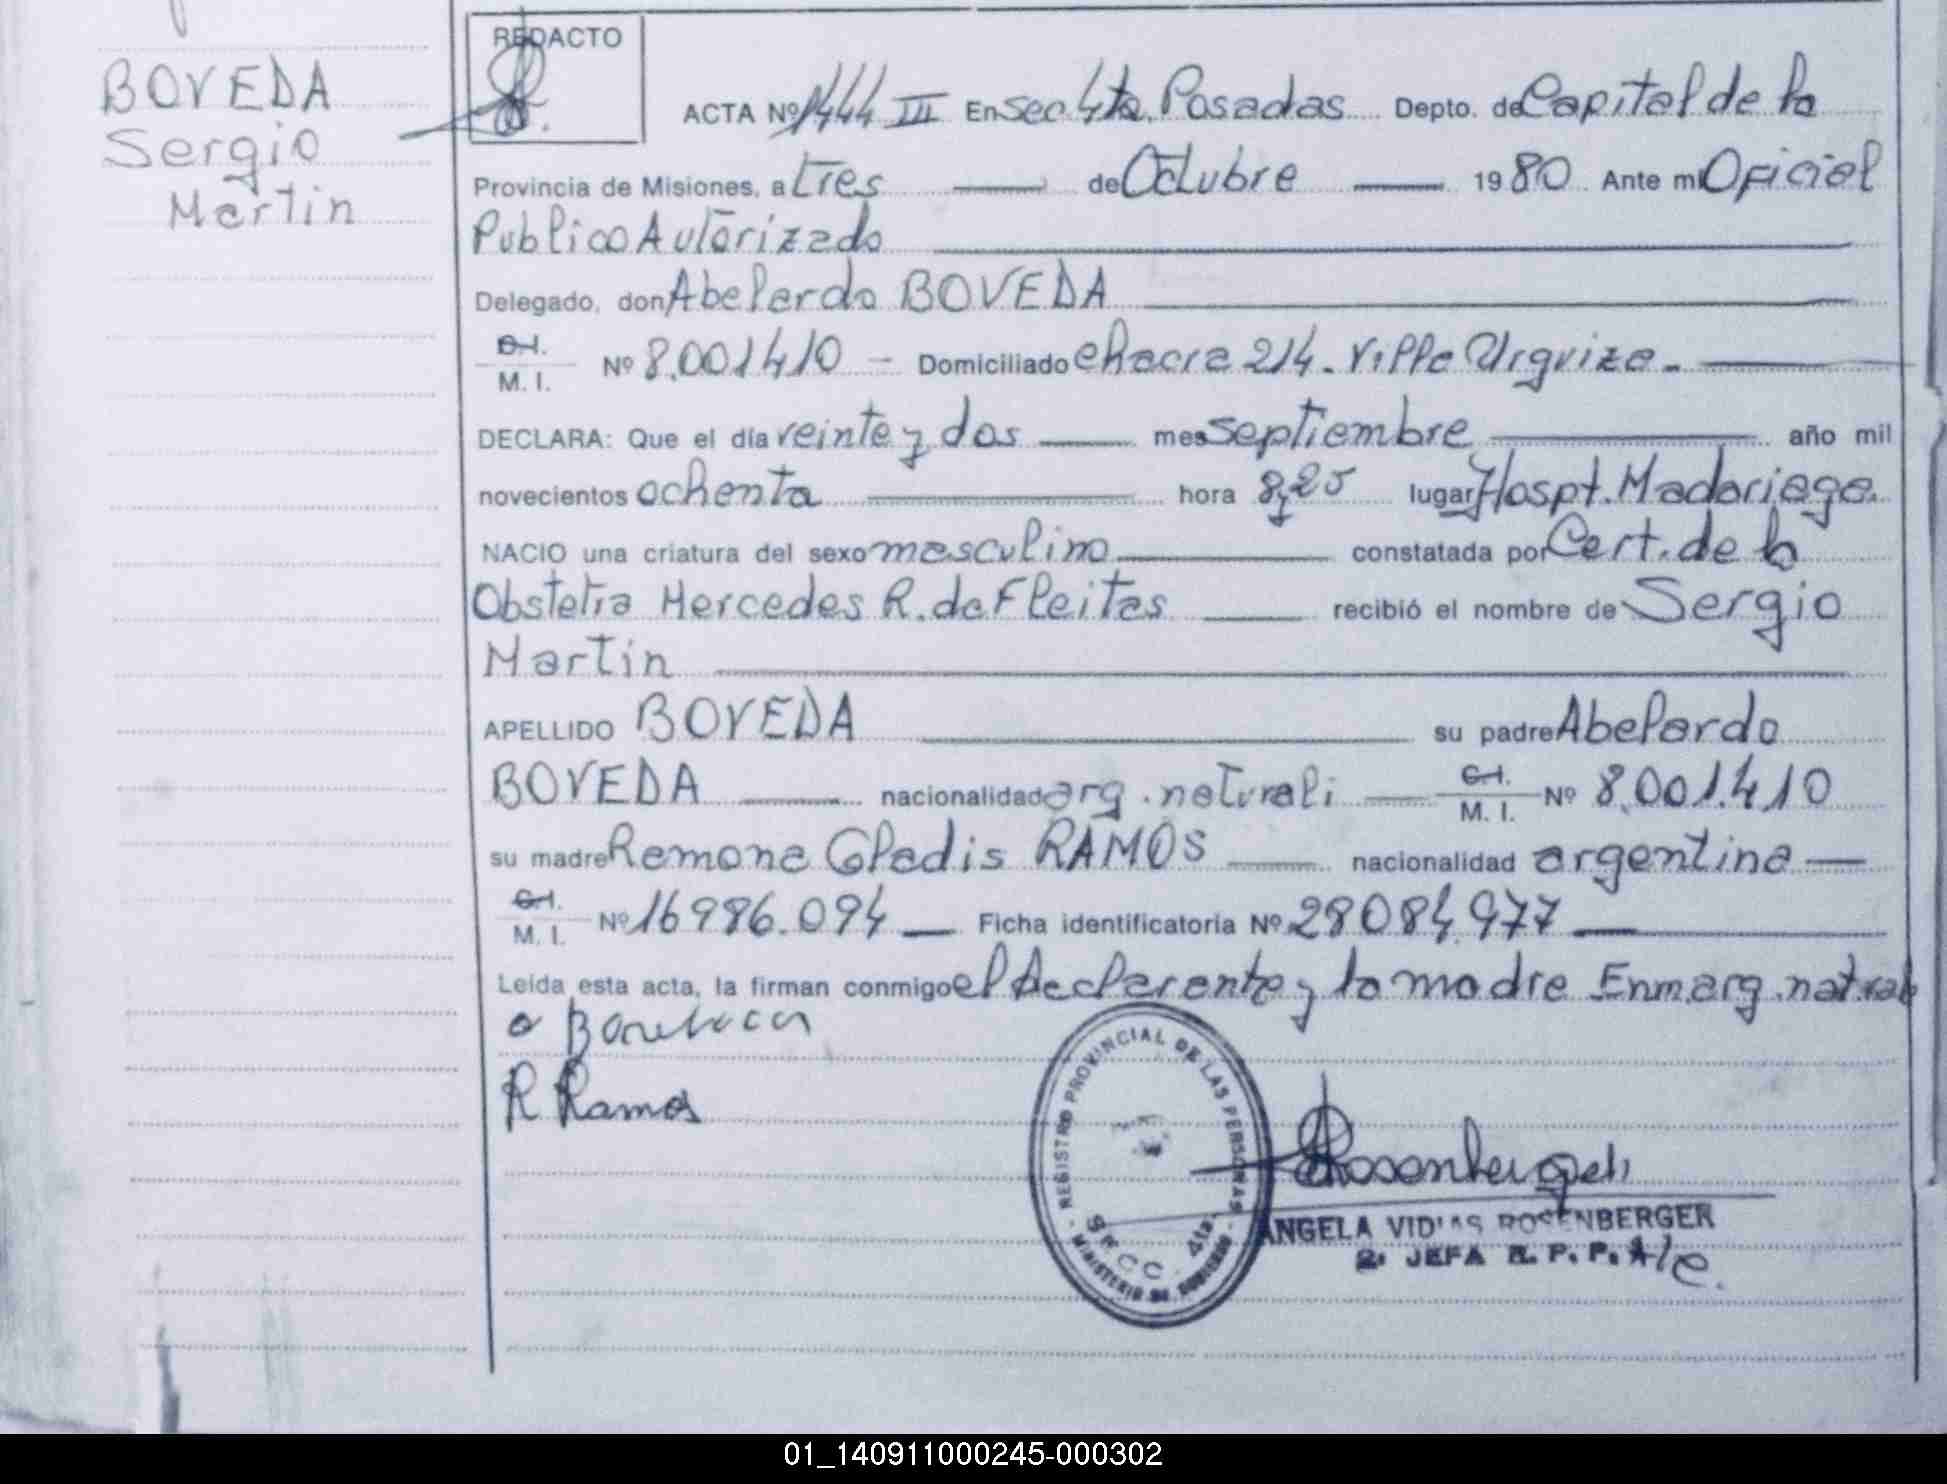 BOVEDA
Sergio
Martin
REDACTO
ACTA Nº 1444 III En Sec 4ta. Posadas Depto. de Capital de la
Provincia de Misiones, a tres de Octubre 1980 Ante mi Oficial
Publico Autorizado
Delegado, don Abelardo BOVEDA
C.I.
M. I. Nº 8.001.410 - Domiciliado chacra 214. Villa Urquiza.
DECLARA: Que el día veinte y dos mes septiembre año mil
novecientos ochenta hora 8,25 lugar Hospt. Madariaga.
NACIO una criatura del sexo masculino constatada por Cert. de la
Obstetra Mercedes R. de Fleitas recibió el nombre de Sergio
Martin
APELLIDO BOVEDA su padre Abelardo
BOVEDA nacionalidad arg. naturali C.I. M. I. Nº 8.001.410
su madre Ramona Gladis RAMOS nacionalidad argentina
C.I.
M. I. Nº 16986.094 Ficha identificatoria Nº 28084.977
Leída esta acta, la firman conmigo el declarante y la madre Enm. arg. natural
R Ramos
REGISTRO PROVINCIAL DE LAS PERSONAS
SECC. 4ta.
MINISTERIO DE GOBIERNO
ANGELA VIDIAS ROSENBERGER
2. JEFA R. P. P. A/c.
01_140911000245-000302